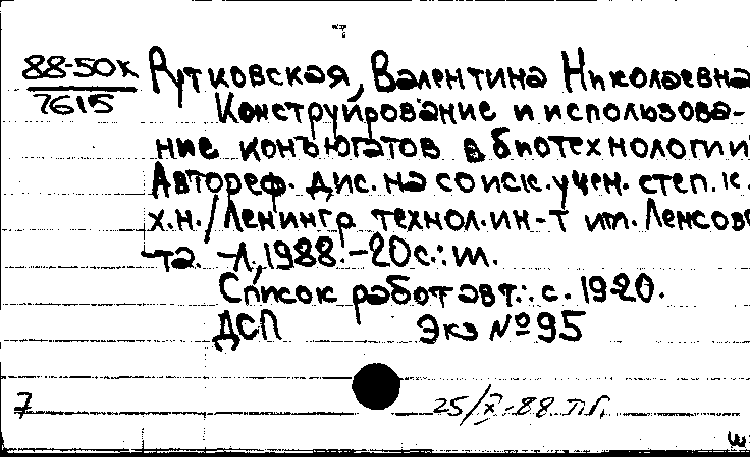 88-50х
7615
Рутковская, Валентина Николаевна
Конструирование и использова-
ние конъюгатов в биотехнологии
Автореф. дис. на соиск. учен. степ. к.
х.н. / Ленингр технол. ин-т им. Ленсове
та. -Л, 1988. -20с.: ил.
Список работ авт.: с. 19-20.
ДСП Экз №95
7
25/X-88